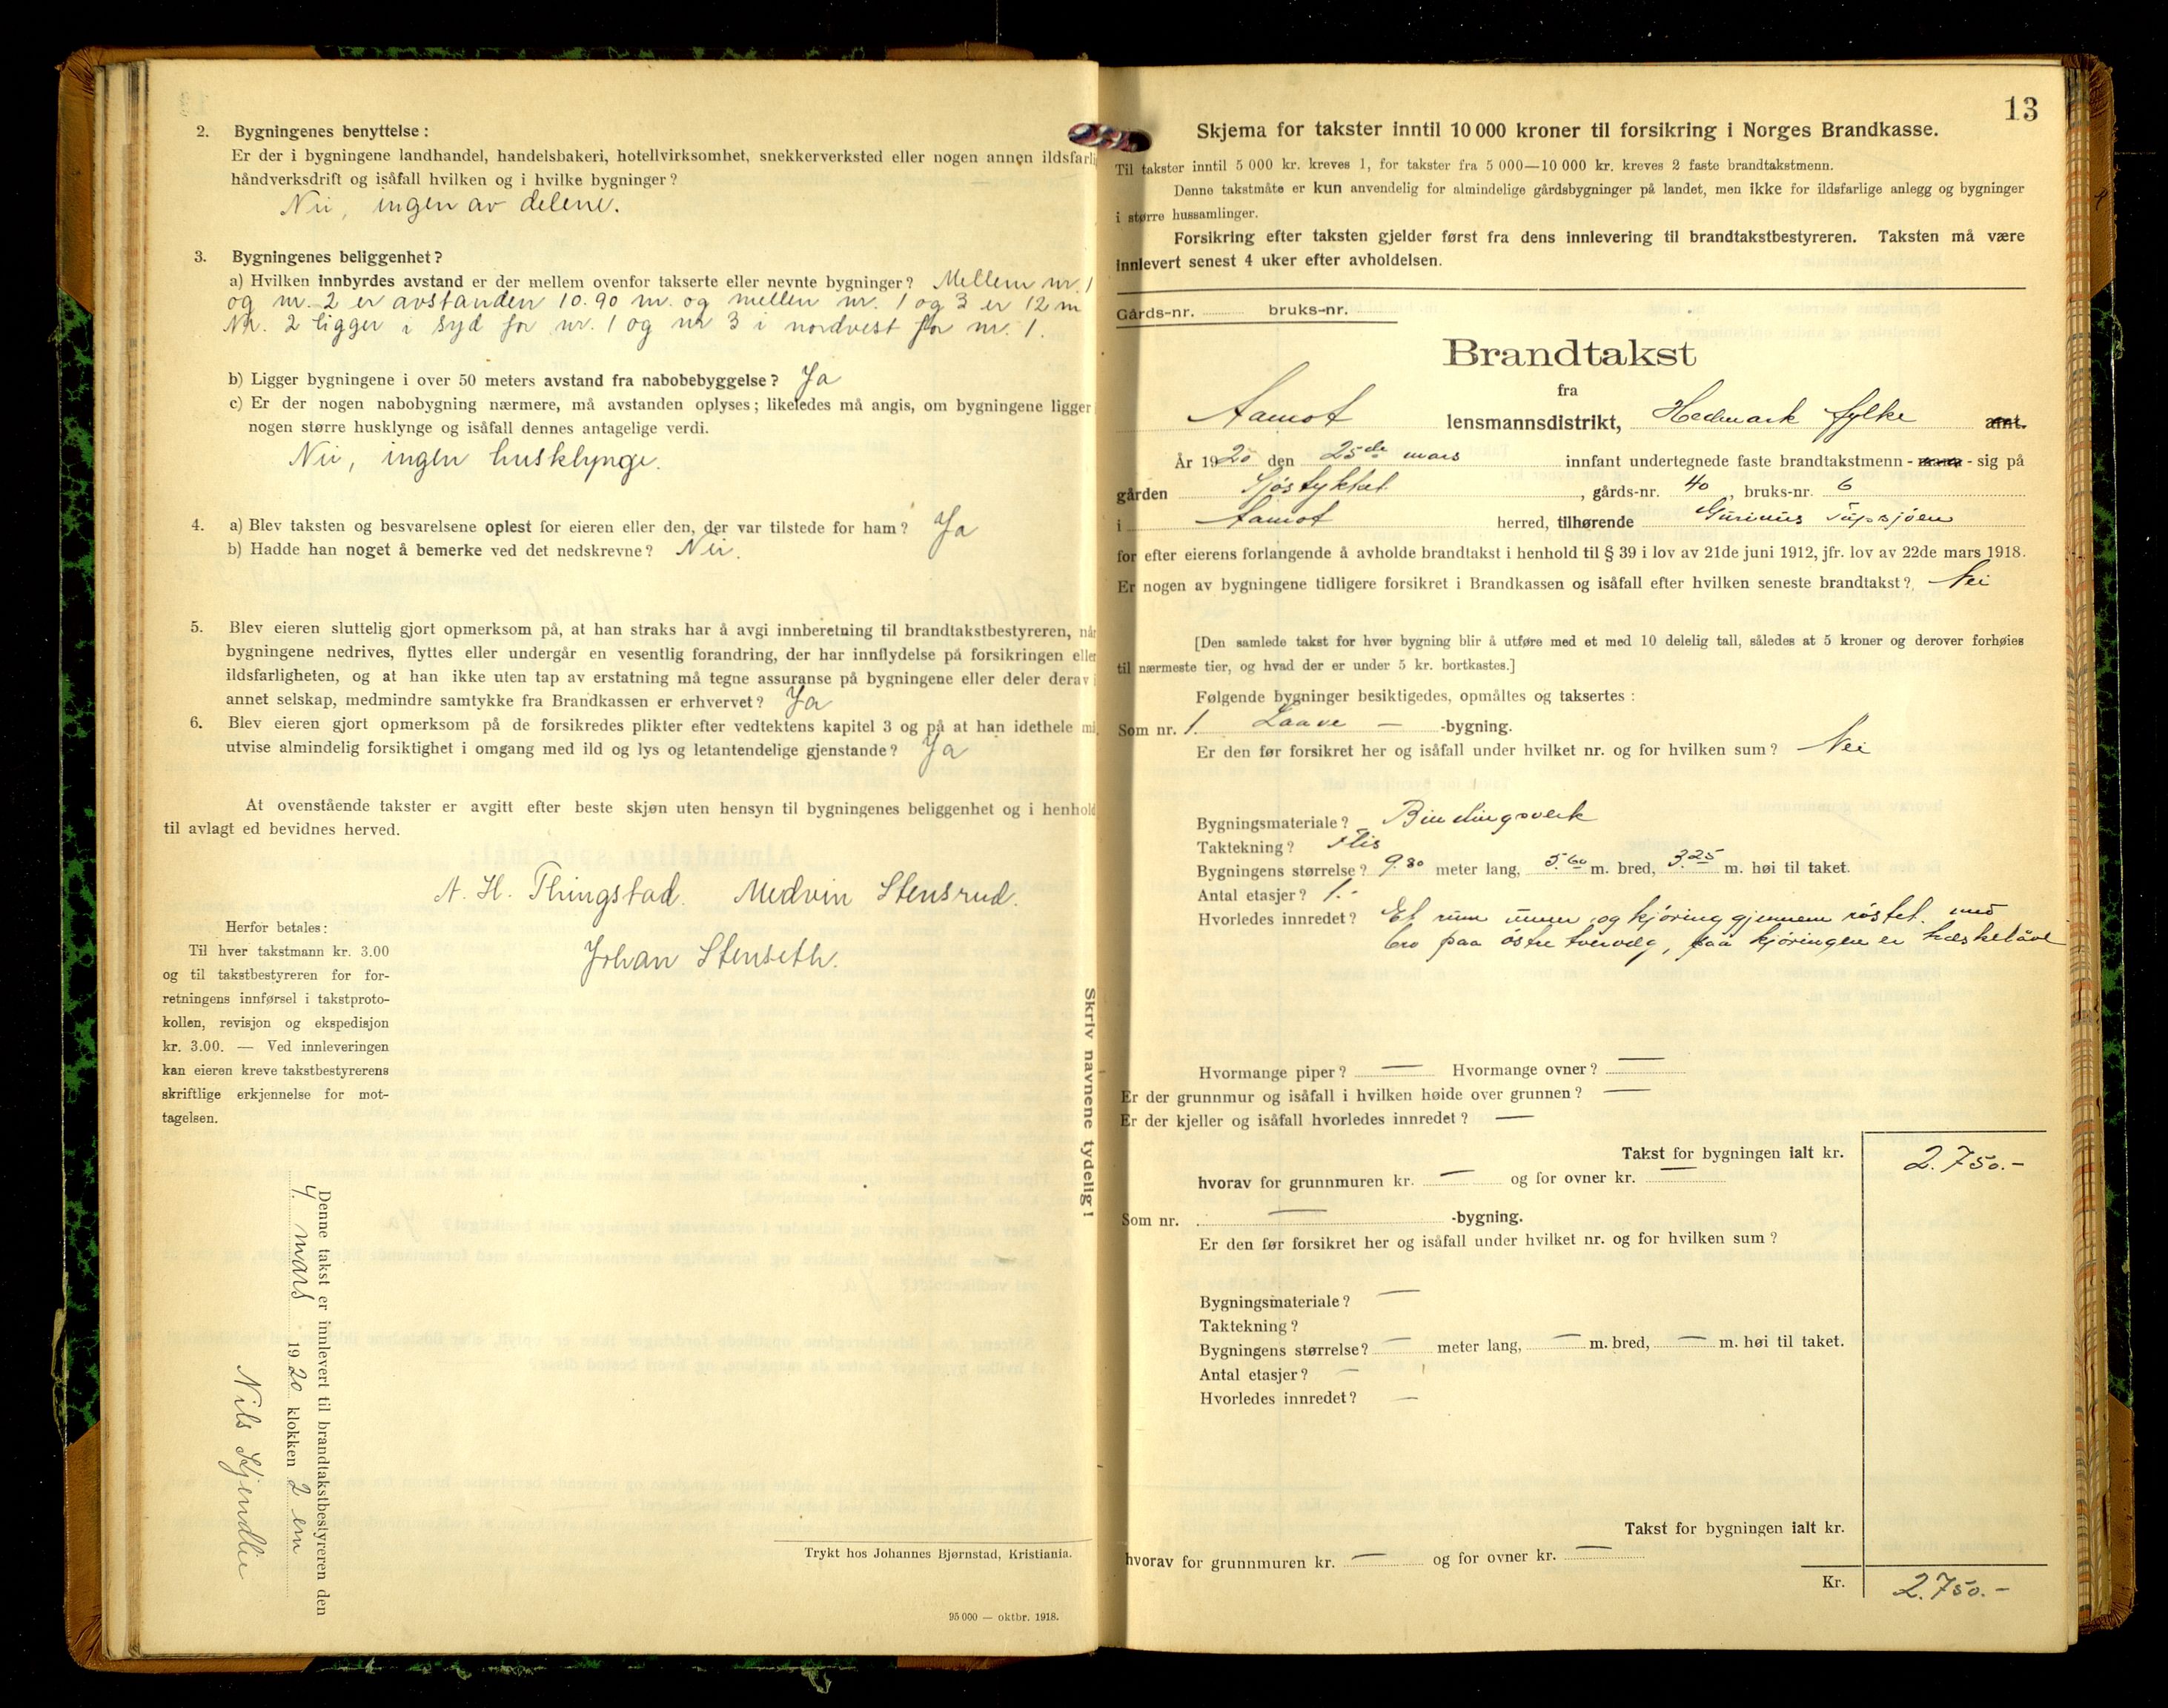 2. Bygningenes benyttelse:
Er der i bygningene landhandel, handelsbakeri, hotellvirksomhet, snekkerverksted eller nogen annen ildsfarli
håndverksdrift og isåfall hvilken og i hvilke bygninger?
Nei, ingen av delene.
3. Bygningenes beliggenhet?
a) Hvilken innbyrdes avstand er der mellem ovenfor takserte eller nevnte bygninger? Mellem nr. 1
og nr. 2 er avstanden 10.90 m. og mellem nr. 1 og 3 er 12 m
Nr. 2 ligger i syd for nr. 1 og nr 3 i nordvest for nr. 1.
b) Ligger bygningene i over 50 meters avstand fra nabobebyggelse? Ja
c) Er der nogen nabobygning nærmere, må avstanden oplyses; likeledes må angis, om bygningene ligger
nogen større husklynge og isåfall dennes antagelige verdi.
Nei, ingen husklynge.
4. a) Blev taksten og besvarelsene oplest for eieren eller den, der var tilstede for ham? Ja
b) Hadde han noget å bemerke ved det nedskrevne? Nei.
5. Blev eieren sluttelig gjort opmerksom på, at han straks har å avgi innberetning til brandtakstbestyreren, når
bygningene nedrives, flyttes eller undergår en vesentlig forandring, der har innflydelse på forsikringen eller
ildsfarligheten, og at han ikke uten tap av erstatning må tegne assuranse på bygningene eller deler derav i
annet selskap, medmindre samtykke fra Brandkassen er erhvervet? Ja
6. Blev eieren gjort opmerksom på de forsikredes plikter efter vedtektens kapitel 3 og på at han idethele må
utvise almindelig forsiktighet i omgang med ild og lys og letantendelige gjenstande? Ja
At ovenstående takster er avgitt efter beste skjøn uten hensyn til bygningenes beliggenhet og i henhold
til avlagt ed bevidnes herved.
A. H. Thingstad. Medvin Stensrud.
Johan Stenseth.
Herfor betales:
Til hver takstmann kr. 3.00
og til takstbestyreren for for-
retningens innførsel i takstproto-
kollen, revisjon og ekspedisjon
kr. 3.00. — Ved innleveringen
kan eieren kreve takstbestyrerens
skriftlige erkjennelse for mot-
tagelsen.
Skriv navnene tydelig!
Denne takst er innlevert til brandtakstbestyreren den
4 mars 1920 klokken 2 em
Nils Kjendlie
Trykt hos Johannes Bjørnstad, Kristiania.
95 000 — oktbr. 1918.
13
Skjema for takster inntil 10 000 kroner til forsikring i Norges Brandkasse.
Til takster inntil 5 000 kr. kreves 1, for takster fra 5 000—10 000 kr. kreves 2 faste brandtakstmenn.
Denne takstmåte er kun anvendelig for almindelige gårdsbygninger på landet, men ikke for ildsfarlige anlegg og bygninger
i større hussamlinger.
Forsikring efter taksten gjelder først fra dens innlevering til brandtakstbestyreren. Taksten må være
innlevert senest 4 uker efter avholdelsen.
Gårds-nr. bruks-nr.
Brandtakst
fra
Aamot lensmannsdistrikt, Hedmark fylke amt.
År 1920 den 25de mars innfant undertegnede faste brandtakstmenn - mann - sig på
gården Sjøstyktet, gårds-nr. 40, bruks-nr. 6
i Aamot herred, tilhørende
for efter eierens forlangende å avholde brandtakst i henhold til § 39 i lov av 21de juni 1912, jfr. lov av 22de mars 1918.
Er nogen av bygningene tidligere forsikret i Brandkassen og isåfall efter hvilken seneste brandtakst? Nei
[Den samlede takst for hver bygning blir å utføre med et med 10 delelig tall, således at 5 kroner og derover forhøies
til nærmeste tier, og hvad der er under 5 kr. bortkastes.]
Følgende bygninger besiktigedes, opmåltes og taksertes:
Som nr. 1. Laave — -bygning.
Er den før forsikret her og isåfall under hvilket nr. og for hvilken sum? Nei
Bygningsmateriale? Bindingsverk
Taktekning? Flis
Bygningens størrelse? 9.80 meter lang, 5.60 m. bred, 3.25 m. høi til taket.
Antal etasjer? 1.-
Hvorledes innredet? Et rum uinnr. og kjøring gjennem røstet. med
bro paa østre tvervæg, paa kjøringen er træskelåve
Hvormange piper? — Hvormange ovner? —
Er der grunnmur og isåfall i hvilken høide over grunnen? —
Er der kjeller og isåfall hvorledes innredet? —
Takst for bygningen ialt kr. 2.750.-
hvorav for grunnmuren kr. — og for ovner kr. —
Som nr. — -bygning.
Er den før forsikret her og isåfall under hvilket nr. og for hvilken sum?
Bygningsmateriale? —
Taktekning?
Bygningens størrelse? — meter lang, — m. bred, — m. høi til taket.
Antal etasjer? —
Hvorledes innredet? —
Takst for bygningen ialt kr.
hvorav for grunnmuren kr. — og for ovner kr. —
Kr. 2.750.-